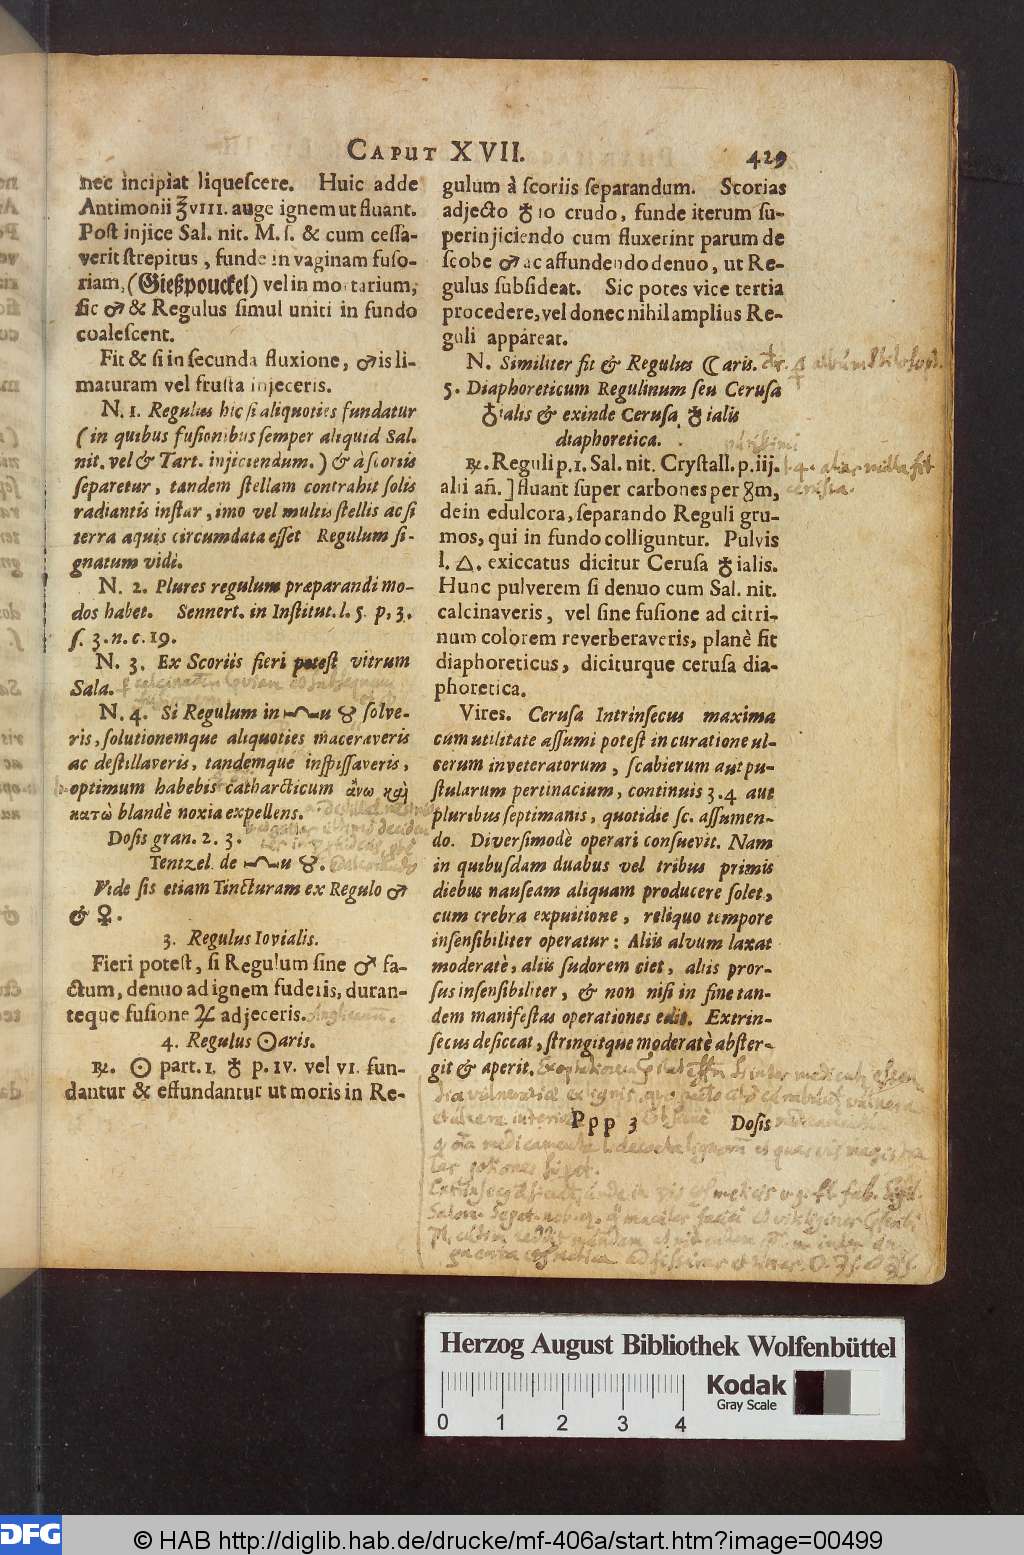 CAPUT XVII.
429
nec incipiat liquescere. Huic adde
Antimonii ℥VIII. auge ignem ut fluant.
Post injice Sal. nit. M. ſ. & cum cessa-
verit strepitus, funde in vaginam fuso-
riam, (Gießpouckel) vel in mortarium,
sic ♂ & Regulus simul uniti in fundo
coalescent.
Fit & si in secunda fluxione, ♂is li-
maturam vel frusta injeceris.
N. 1. Regulus hic si aliquoties fundatur
(in quibus fusionibus semper aliquid Sal.
nit. vel & Tart. injiciendum.) & à scoriis
separetur, tandem stellam contrahit solis
radiantis instar, imo vel multis stellis ac si
terra aquis circumdata esset Regulum si-
gnatum vidi.
N. 2. Plures regulum præparandi mo-
dos habet. Sennert. in Institut. l. 5. p. 3.
ſ. 3. n. c. 19.
N. 3. Ex Scoriis fieri potest vitrum
Sala.
N. 4. Si Regulum in u solve-
ris, solutionemque aliquoties maceraveris
ac destillaveris, tandemque inspissaveris,
optimum habebis catharcticum ἄνω καὶ
κατὼ blandè noxia expellens.
Dosis gran. 2. 3.
Tentzel. de u
Vide sis etiam Tincturam ex Regulo ♂
& ♀.
3. Regulus Iovialis.
Fieri potest, si Regulum sine ♂ fa-
ctum, denuo ad ignem fuderis, duran-
teque fusione ♃ adjeceris.
4. Regulus ☉aris.
℞. ☉ part. I. ♁ p. IV. vel VI. fun-
dantur & effundantur ut moris in Re-
gulum à scoriis separandum. Scorias
adjecto ♁io crudo, funde iterum su-
perinjiciendo cum fluxerint parum de
scobe ♂ ac affundendo denuo, ut Re-
gulus subsideat. Sic potes vice tertia
procedere, vel donec nihil amplius Re-
guli appareat.
N. Similiter fit & Regulus ☾aris.
5. Diaphoreticum Regulinum seu Cerusa
♁ialis & exinde Cerusa ♁ialis
diaphoretica.
℞. Reguli p. 1. Sal. nit. Crystall. p. iij.
alii añ. ] fluant super carbones per m,
dein edulcora, separando Reguli gru-
mos, qui in fundo colliguntur. Pulvis
l. △. exiccatus dicitur Cerusa ♁ialis.
Hunc pulverem si denuo cum Sal. nit.
calcinaveris, vel sine fusione ad citri-
num colorem reverberaveris, planè fit
diaphoreticus, diciturque cerusa dia-
phoretica.
Vires. Cerusa Intrinsecus maxima
cum utilitate assumi potest in curatione ul-
cerum inveteratorum, scabierum aut pu-
stularum pertinacium, continuis 3. 4 aut
pluribus septimanis, quotidie sc. assumen-
do. Diversimodè operari consuevit. Nam
in quibusdam duabus vel tribus primis
diebus nauseam aliquam producere solet,
cum crebra expuitione, reliquo tempore
insensibiliter operatur: Aliis alvum laxat
moderatè, aliis sudorem ciet, aliis pror-
sus insensibiliter, & non nisi in fine tan-
dem manifestas operationes edit. Extrin-
secus desiccat, stringitque moderatè abster-
git & aperit.
Ppp 3
Dosis
Herzog August Bibliothek Wolfenbüttel
0 1 2 3 4
Kodak
Gray Scale
DFG
© HAB http://diglib.hab.de/drucke/mf-406a/start.htm?image=00499